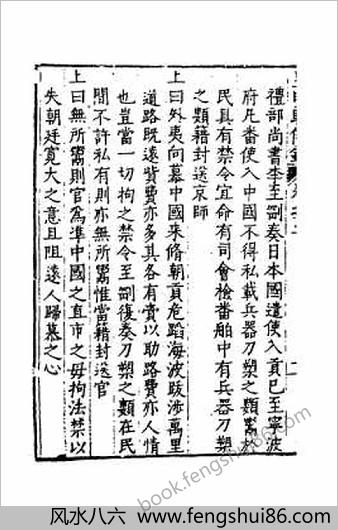 禮部尚書李至剛奏日本國遣使入貢已至寧波
府凡番使入中國不得私載兵器刀槊之類鬻於
民具有禁令宜命有司會檢番舶中有兵器刀槊
之類籍封送京師
上曰外夷向慕中國來脩朝貢危蹈海波跋涉萬里
道路既遠貲費亦多其各有賫以助路費亦人情
也豈當一切拘之禁令至剛復奏刀槊之類在民
間不許私有則亦無所鬻惟當籍封送官
上曰無所鬻則官為準中國之直市之毋拘法禁以
失朝廷寬大之意且阻遠人歸慕之心
book.fengshui86.com
风水八六 ( www.fengshui86.com )